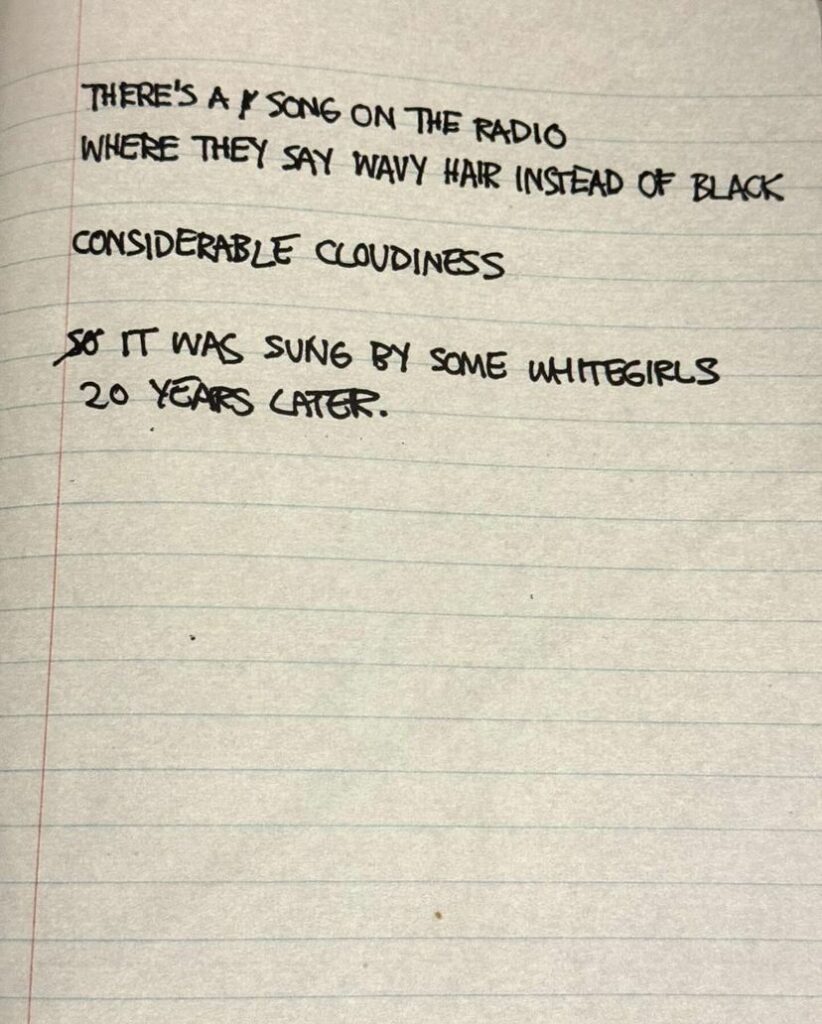 THERE'S A SONG ON THE RADIO
WHERE THEY SAY WAVY HAIR INSTEAD OF BLACK
CONSIDERABLE CLOUDINESS
SO IT WAS SUNG BY SOME WHITEGIRLS
20 YEARS LATER.